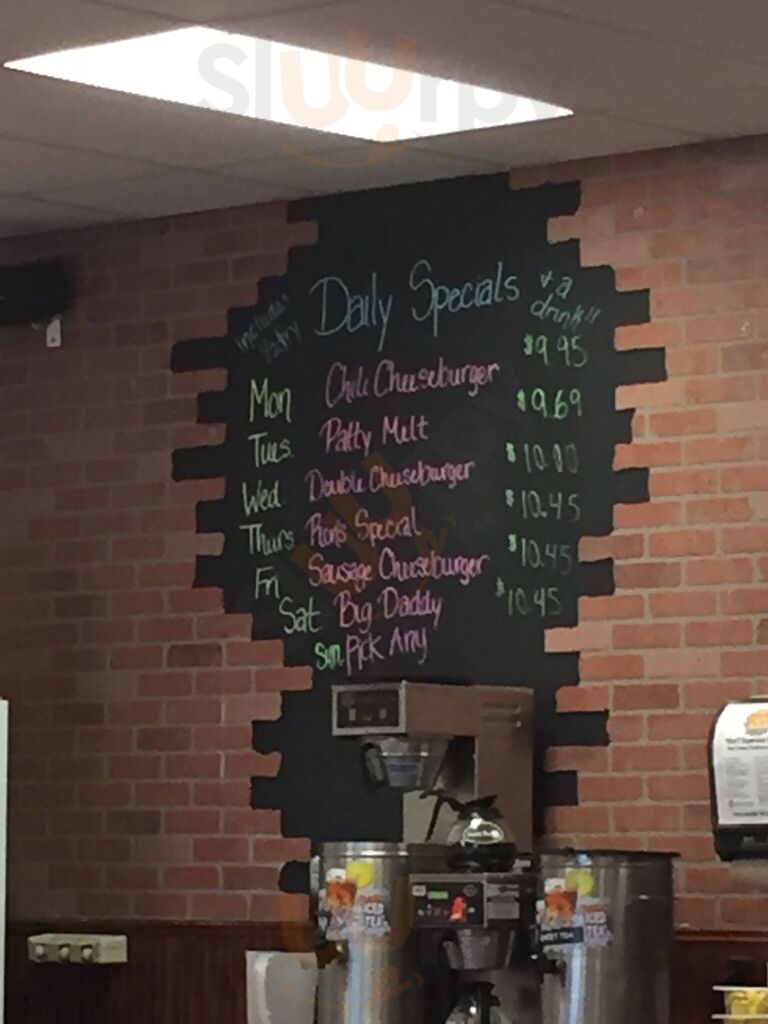 slurrpy
Daily Specials
includes 1/2 fry
+ a drink!!
Mon Chili Cheeseburger $9.95
Tues. Patty Melt $9.69
Wed Double Cheeseburger $10.00
Thurs Ron's Special $10.45
Fri Sausage Cheeseburger $10.45
Sat Big Daddy $10.45
Sun Pick Any
ICED TEA
ICED TEA
SWEET TEA